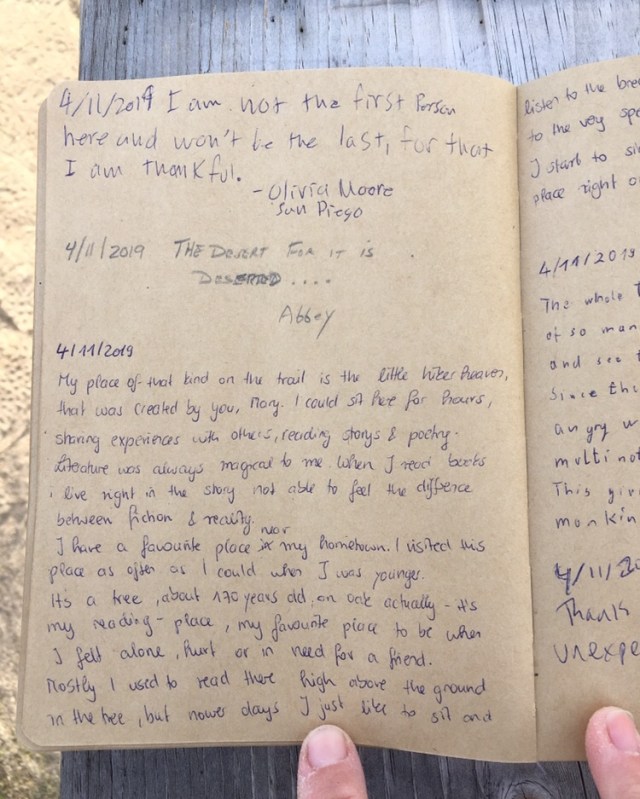 4/11/2019 I am not the first Person
here and won't be the last, for that
I am thankful.
- Olivia Moore
San Diego
4/11/2019 THE DESERT FOR IT IS
DESERTED ....
Abbey
4/11/2019
My place of that kind on the trail is the little hiker heaven,
that was created by you, Mary. I could sit here for hours,
sharing experiences with others, reading storys & poetry.
Literature was always magical to me. When I read books
i live right in the story not able to feel the diffence
between fiction & reality.
I have a favourite place near my hometown. I visited this
place as often as I could when I was younger.
It's a tree, about 170 years old, an oak actually - it's
my reading-place, my favourite place to be when
I felt alone, hurt or in need for a friend.
Mostly I used to read there high above the ground
in the tree, but nower days I just like to sit and
listen to the
to the very
I start to
place right
4/11/2019
The whole
of so
and see
Since
angry
multi
This
4/11/
Thank